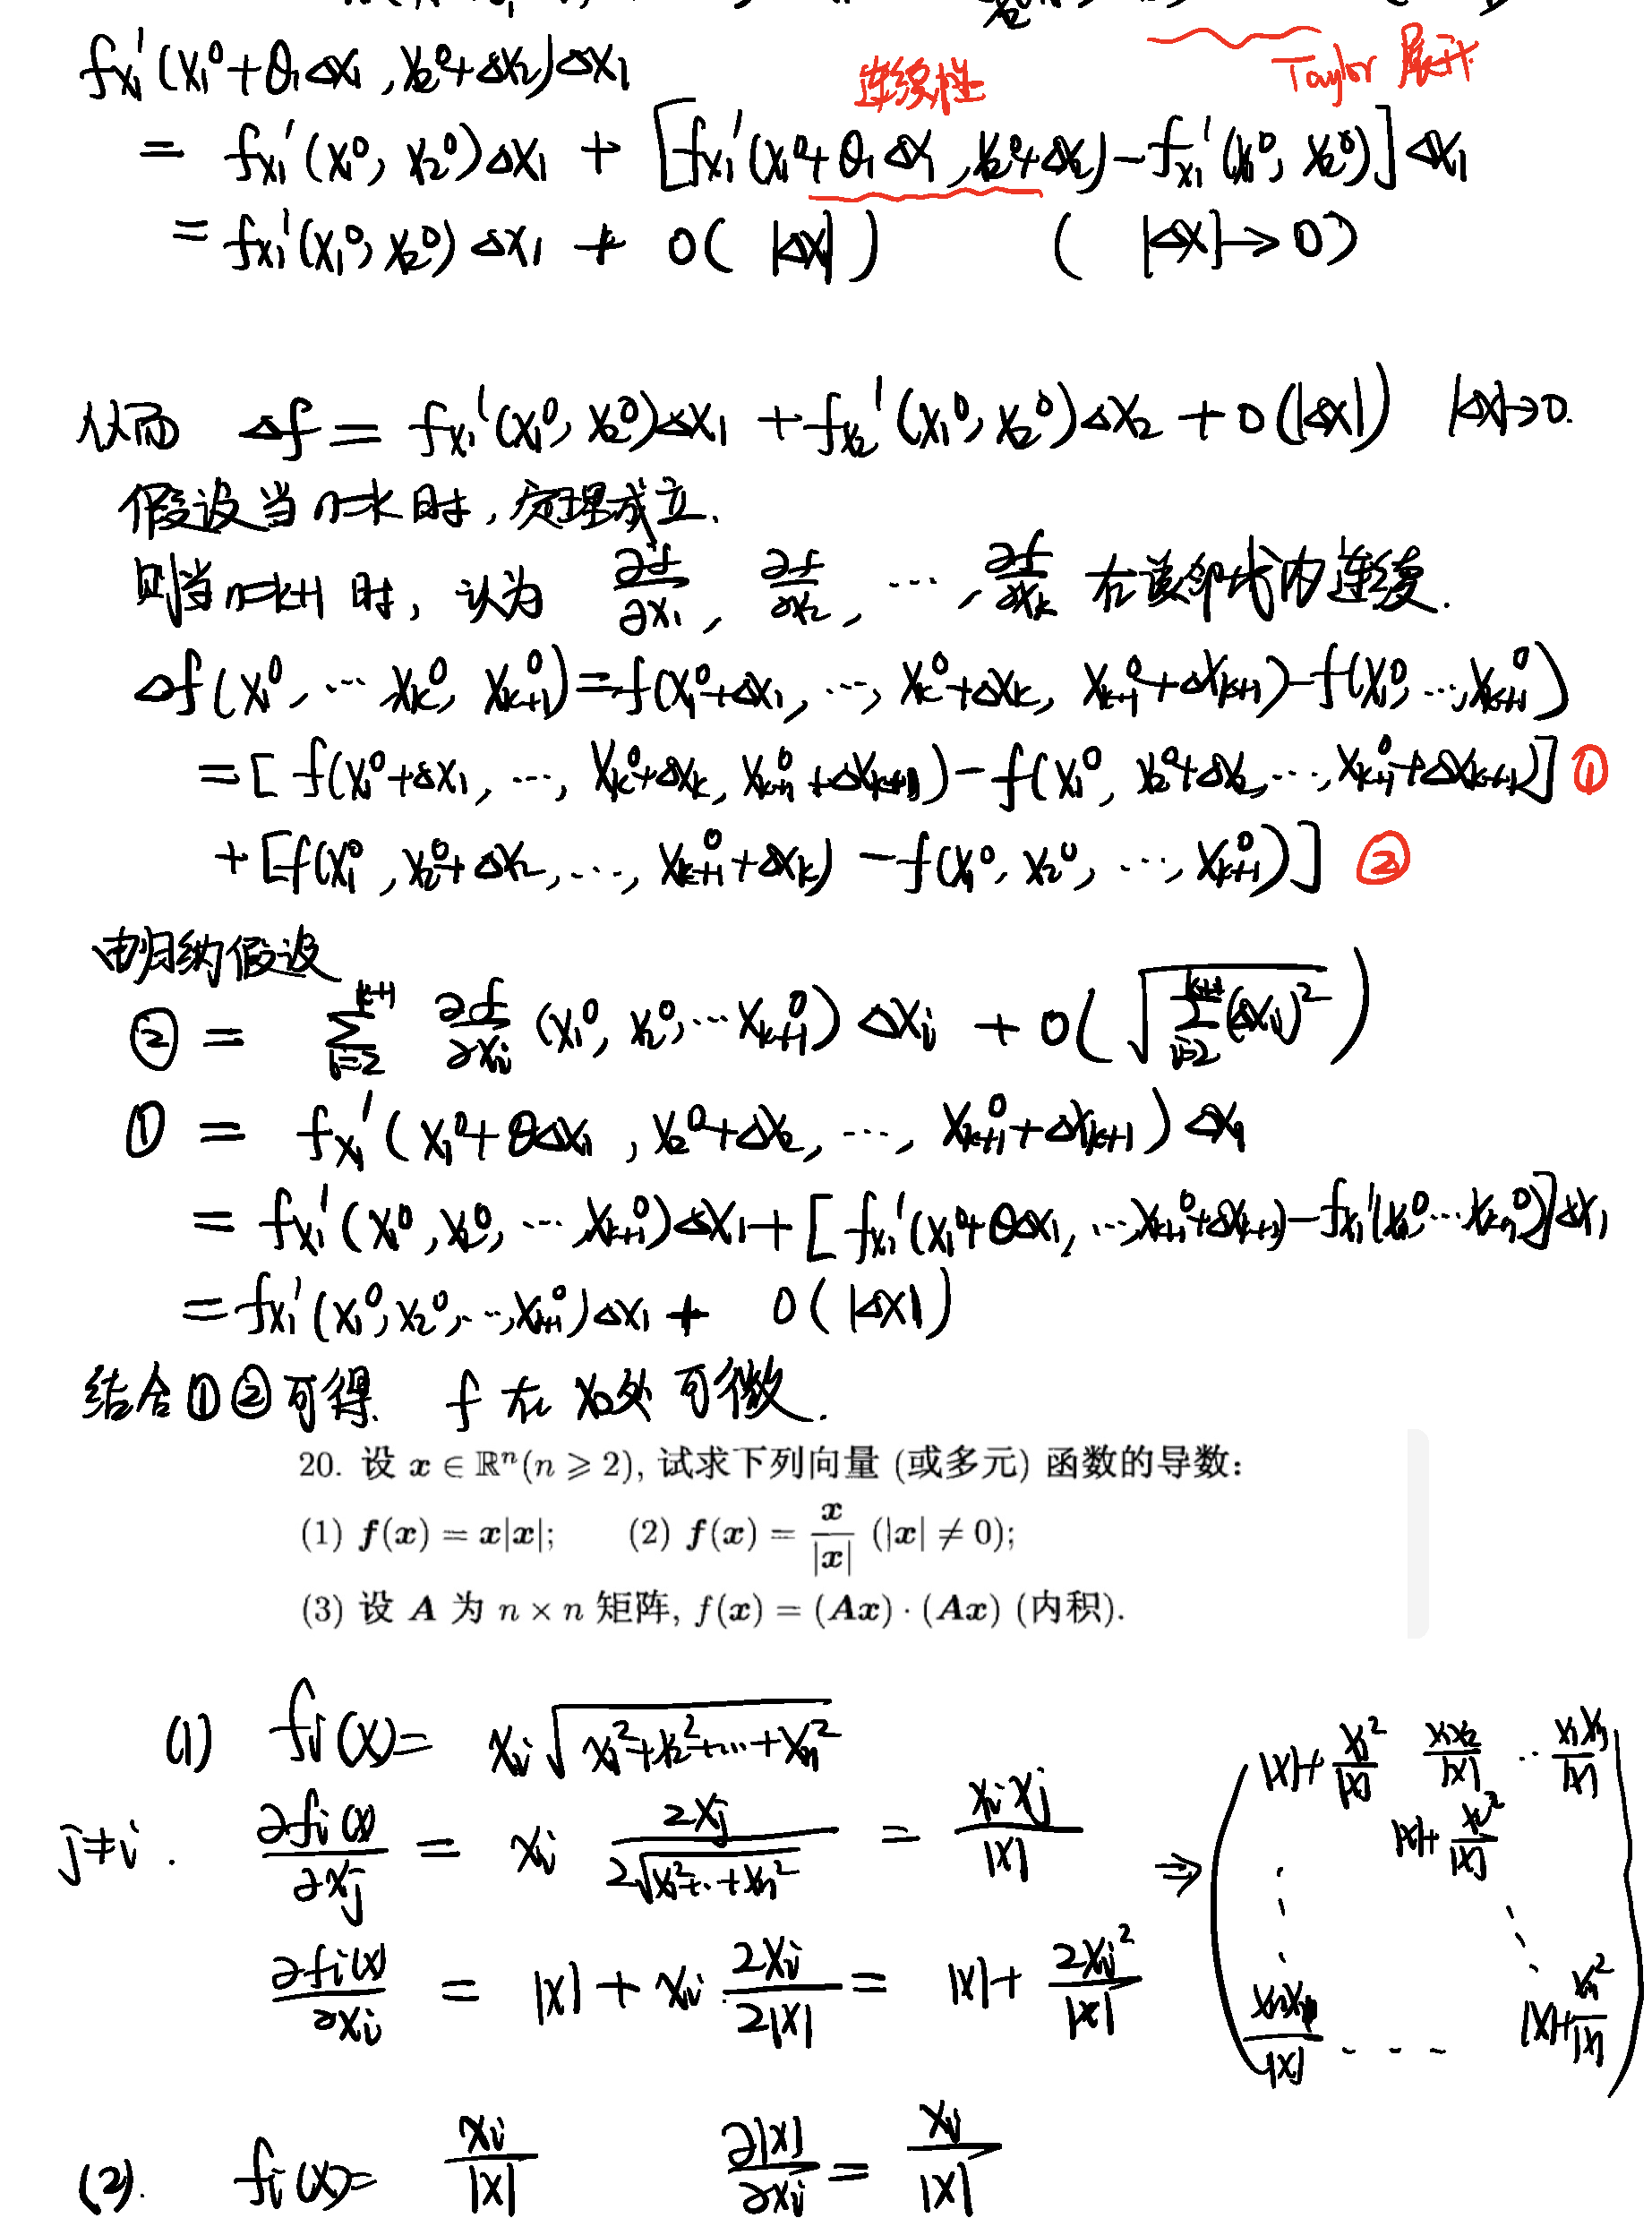 f'ₓ₁(x₁⁰+θ₁Δx₁, x₂⁰+Δx₂)Δx₁
连续性 Taylor 展开
= f'ₓ₁(x₁⁰, x₂⁰)Δx₁ + [f'ₓ₁(x₁⁰+θ₁Δx₁, x₂⁰+Δx₂) − f'ₓ₁(x₁⁰, x₂⁰)]Δx₁
= f'ₓ₁(x₁⁰, x₂⁰)Δx₁ + o(|Δx|) (|Δx|→0)
从而 Δf = f'ₓ₁(x₁⁰, x₂⁰)Δx₁ + f'ₓ₂(x₁⁰, x₂⁰)Δx₂ + o(|Δx|) |Δx|→0.
假设当 n=k 时, 定理成立.
则当 n=k+1 时, 认为 ∂f/∂x₁, ∂f/∂x₂, …, ∂f/∂xₖ 在该邻域内连续.
Δf(x₁⁰, … xₖ⁰, xₖ₊₁⁰) = f(x₁⁰+Δx₁, …, xₖ⁰+Δxₖ, xₖ₊₁⁰+Δxₖ₊₁) − f(x₁⁰, …, xₖ₊₁⁰)
= [f(x₁⁰+Δx₁, …, xₖ⁰+Δxₖ, xₖ₊₁⁰+Δxₖ₊₁) − f(x₁⁰, x₂⁰+Δx₂, …, xₖ₊₁⁰+Δxₖ₊₁)] ①
+ [f(x₁⁰, x₂⁰+Δx₂, …, xₖ₊₁⁰+Δxₖ) − f(x₁⁰, x₂⁰, …, xₖ₊₁⁰)] ②
由归纳假设
② = ∑ᵢ₌₂ᵏ⁺¹ ∂f/∂xᵢ (x₁⁰, x₂⁰, … xₖ₊₁⁰)Δxᵢ + o(√(∑ᵢ₌₂ᵏ⁺¹(Δxᵢ)²))
① = f'ₓ₁(x₁⁰+θΔx₁, x₂⁰+Δx₂, …, xₖ₊₁⁰+Δxₖ₊₁)Δx₁
= f'ₓ₁(x₁⁰, x₂⁰, …, xₖ₊₁⁰)Δx₁ + [f'ₓ₁(x₁⁰+θΔx₁, …, xₖ₊₁⁰+Δxₖ₊₁) − f'ₓ₁(x₁⁰, … xₖ₊₁⁰)]Δx₁
= f'ₓ₁(x₁⁰, x₂⁰, …, xₖ₊₁⁰)Δx₁ + o(|Δx|)
结合①②可得. f 在 x₀处 可微.
20. 设 x ∈ ℝⁿ(n ⩾ 2), 试求下列向量 (或多元) 函数的导数:
(1) f(x) = x|x|; (2) f(x) = x/|x| (|x| ≠ 0);
(3) 设 A 为 n × n 矩阵, f(x) = (Ax) · (Ax) (内积).
(1) fᵢ(x) = xᵢ√(x₁²+x₂²+…+xₙ²)
j≠i. ∂fᵢ(x)/∂xⱼ = xᵢ 2xⱼ/(2√(x₁²+…+xₙ²)) = xᵢxⱼ/|x| ⇒ ( |x|+x₁²/|x| x₁x₂/|x| … x₁xₙ/|x|
|x|+x₂²/|x|
∂fᵢ(x)/∂xᵢ = |x| + xᵢ·2xᵢ/(2|x|) = |x| + 2xᵢ²/|x|
xₙx₁/|x| … |x|+xₙ²/|x| )
(2). fᵢ(x) = xᵢ/|x| ∂|x|/∂xᵢ = xᵢ/|x|